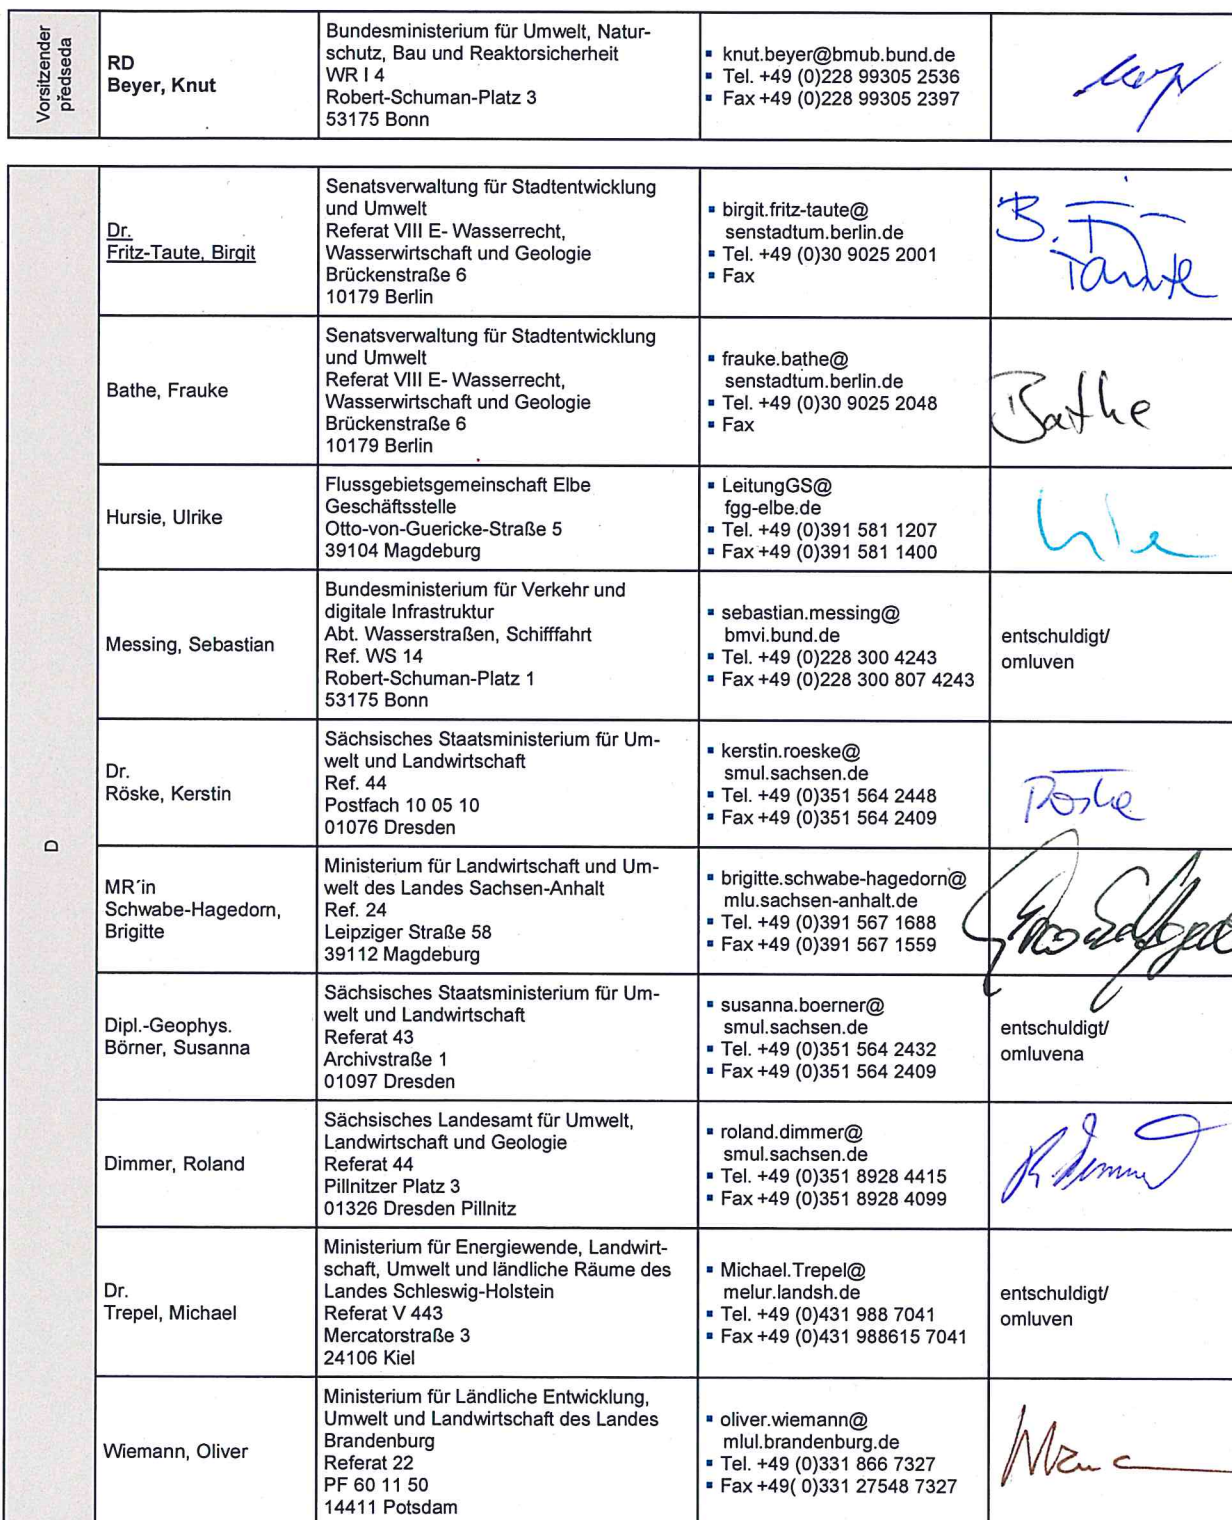 Vorsitzender
předseda
RD
Beyer, Knut
Bundesministerium für Umwelt, Natur-
schutz, Bau und Reaktorsicherheit
WR I 4
Robert-Schuman-Platz 3
53175 Bonn
▪ knut.beyer@bmub.bund.de
▪ Tel. +49 (0)228 99305 2536
▪ Fax +49 (0)228 99305 2397
D
Dr.
Fritz-Taute, Birgit
Senatsverwaltung für Stadtentwicklung
und Umwelt
Referat VIII E- Wasserrecht,
Wasserwirtschaft und Geologie
Brückenstraße 6
10179 Berlin
▪ birgit.fritz-taute@
senstadtum.berlin.de
▪ Tel. +49 (0)30 9025 2001
▪ Fax
Bathe, Frauke
Senatsverwaltung für Stadtentwicklung
und Umwelt
Referat VIII E- Wasserrecht,
Wasserwirtschaft und Geologie
Brückenstraße 6
10179 Berlin
▪ frauke.bathe@
senstadtum.berlin.de
▪ Tel. +49 (0)30 9025 2048
▪ Fax
Bathe
Hursie, Ulrike
Flussgebietsgemeinschaft Elbe
Geschäftsstelle
Otto-von-Guericke-Straße 5
39104 Magdeburg
▪ LeitungGS@
fgg-elbe.de
▪ Tel. +49 (0)391 581 1207
▪ Fax +49 (0)391 581 1400
Messing, Sebastian
Bundesministerium für Verkehr und
digitale Infrastruktur
Abt. Wasserstraßen, Schifffahrt
Ref. WS 14
Robert-Schuman-Platz 1
53175 Bonn
▪ sebastian.messing@
bmvi.bund.de
▪ Tel. +49 (0)228 300 4243
▪ Fax +49 (0)228 300 807 4243
entschuldigt/
omluven
Dr.
Röske, Kerstin
Sächsisches Staatsministerium für Um-
welt und Landwirtschaft
Ref. 44
Postfach 10 05 10
01076 Dresden
▪ kerstin.roeske@
smul.sachsen.de
▪ Tel. +49 (0)351 564 2448
▪ Fax +49 (0)351 564 2409
MR´in
Schwabe-Hagedorn,
Brigitte
Ministerium für Landwirtschaft und Um-
welt des Landes Sachsen-Anhalt
Ref. 24
Leipziger Straße 58
39112 Magdeburg
▪ brigitte.schwabe-hagedorn@
mlu.sachsen-anhalt.de
▪ Tel. +49 (0)391 567 1688
▪ Fax +49 (0)391 567 1559
Dipl.-Geophys.
Börner, Susanna
Sächsisches Staatsministerium für Um-
welt und Landwirtschaft
Referat 43
Archivstraße 1
01097 Dresden
▪ susanna.boerner@
smul.sachsen.de
▪ Tel. +49 (0)351 564 2432
▪ Fax +49 (0)351 564 2409
entschuldigt/
omluvena
Dimmer, Roland
Sächsisches Landesamt für Umwelt,
Landwirtschaft und Geologie
Referat 44
Pillnitzer Platz 3
01326 Dresden Pillnitz
▪ roland.dimmer@
smul.sachsen.de
▪ Tel. +49 (0)351 8928 4415
▪ Fax +49 (0)351 8928 4099
Dr.
Trepel, Michael
Ministerium für Energiewende, Landwirt-
schaft, Umwelt und ländliche Räume des
Landes Schleswig-Holstein
Referat V 443
Mercatorstraße 3
24106 Kiel
▪ Michael.Trepel@
melur.landsh.de
▪ Tel. +49 (0)431 988 7041
▪ Fax +49 (0)431 988615 7041
entschuldigt/
omluven
Wiemann, Oliver
Ministerium für Ländliche Entwicklung,
Umwelt und Landwirtschaft des Landes
Brandenburg
Referat 22
PF 60 11 50
14411 Potsdam
▪ oliver.wiemann@
mlul.brandenburg.de
▪ Tel. +49 (0)331 866 7327
▪ Fax +49( 0)331 27548 7327